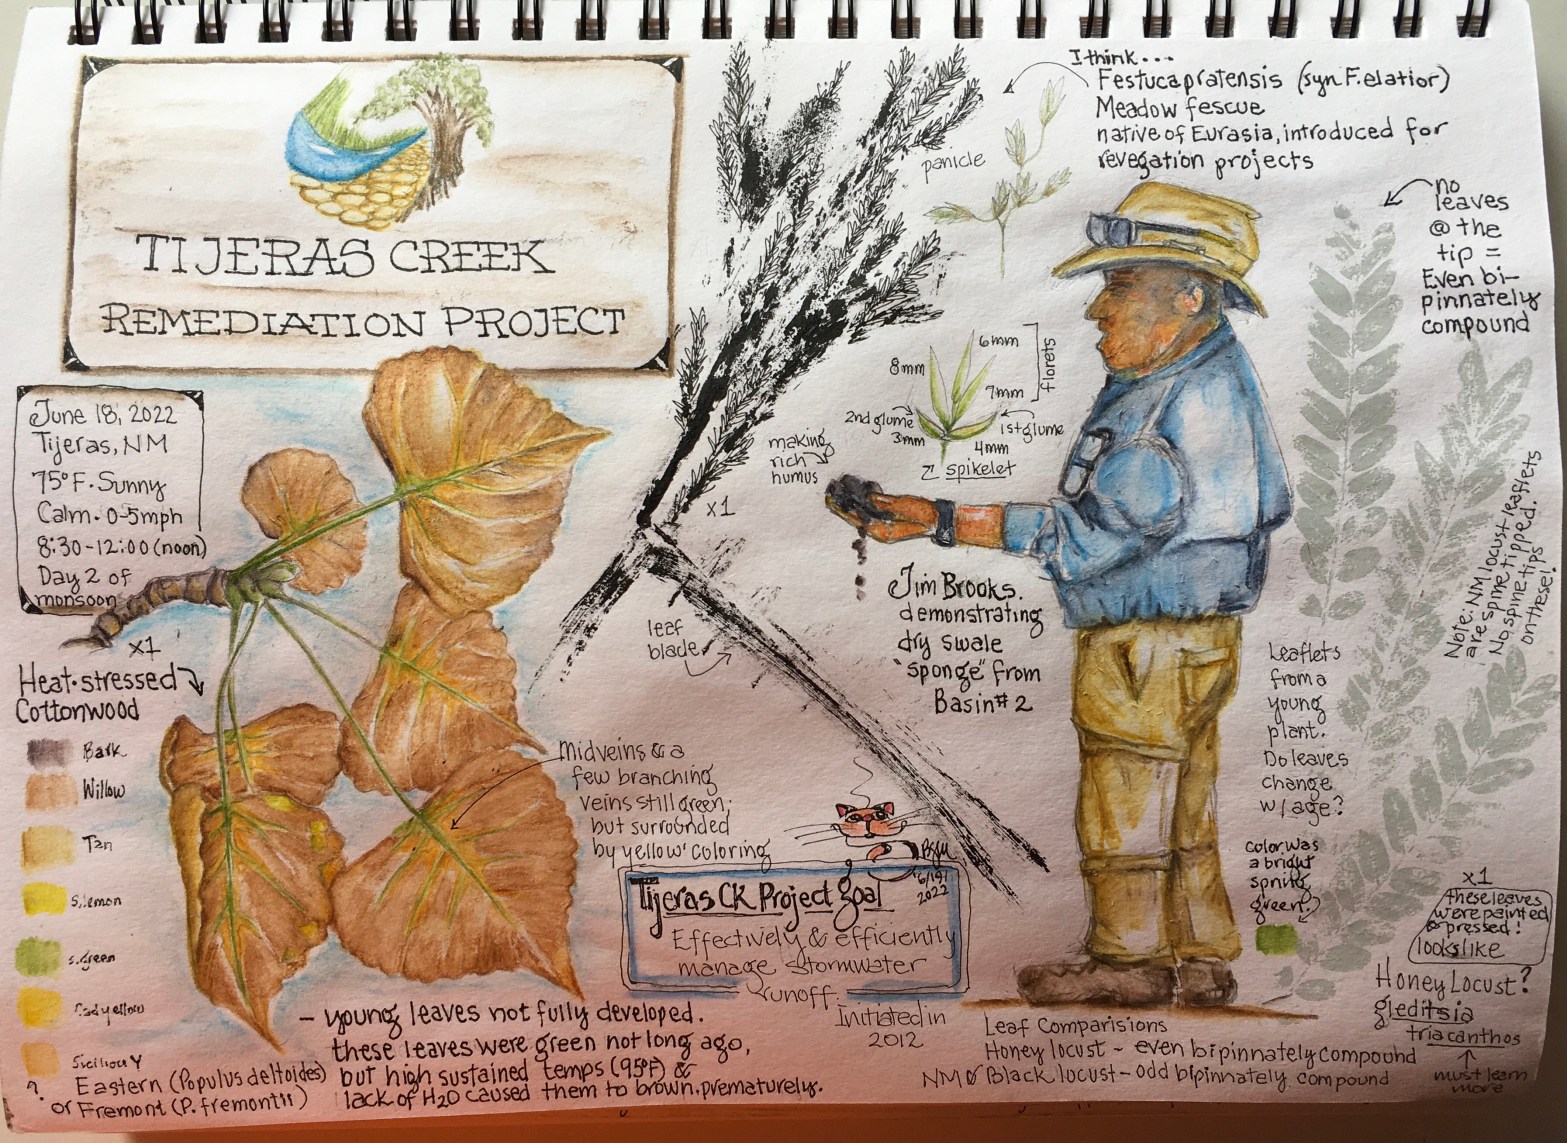 TIJERAS CREEK
REMEDIATION PROJECT
June 18, 2022
Tijeras, NM
75°F. Sunny
Calm. 0-5mph
8:30-12:00 (noon)
Day 2 of
monsoon
x1
Heat-stressed
Cottonwood
Bark
Willow
Tan
S. lemon
S. green
Cad yellow
?
Eastern (Populus deltoides)
or Fremont (P. fremontii)
- young leaves not fully developed.
these leaves were green not long ago,
but high sustained temps (95°F) &
lack of H2O caused them to brown prematurely.
Midveins & a
few branching
veins still green;
but surrounded
by yellow coloring
leaf
blade
x1
I think...
Festuca pratensis (syn F. elatior)
Meadow fescue
native of Eurasia, introduced for
revegation projects
panicle
6mm
8mm
7mm
florets
2nd glume
3mm
1st glume
4mm
spikelet
making
rich
humus
Jim Brooks.
demonstrating
dry swale
"sponge" from
Basin #2
6/19/
2022
Tijeras CK Project goal
Effectively & efficiently
manage stormwater
runoff
Initiated in
2012
no
leaves
@ the
tip =
Even bi-
pinnately
compound
Note: NM locust leaflets
are spine tipped.
No spine tips
on these!
Leaflets
from a
young
plant.
Do leaves
change
w/ age?
color was
a bright
spring
green.
x1
these leaves
were painted
& pressed!
looks like
Honey Locust?
gleditsia
triacanthos
must learn
more
Leaf Comparisions
Honey locust - even bipinnately compound
NM or Black locust - odd bipinnately compound